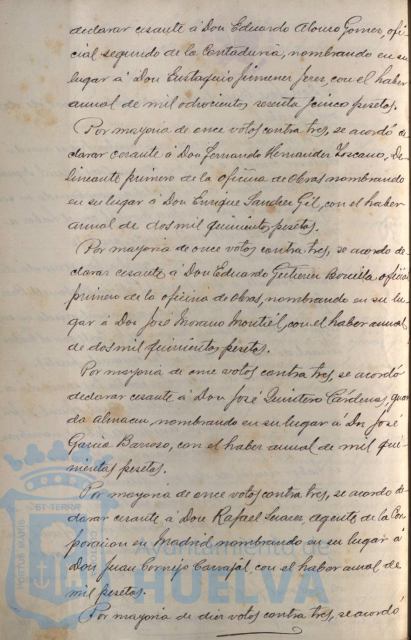 declarar cesante á Don Eduardo Alonso Gomez, ofi-
cial segundo de la Contaduria, nombrando en su
lugar á Don Eustafuio Jimenez Jerez, con el haber
anual de mil ochocientos sesenta y cinco pesetas.
Por mayoria de once votos contra tres, se acordó de-
clarar cesante á Don Fernando Hernandez Loscano, De-
lineante primero de la oficina de Obras nombrando
en su lugar á Don Enrique Sanchez Gil, con el haber
anual de dos mil quinientas pesetas.
Por mayoria de once votos contra tres, se acordo de-
clarar cesante á Don Eduardo Gutierrez oficial
primero de la oficina de Obras, nombrando en su lu-
gar á Don José Morano Montiel, con el haber anual
de dos mil quinientas pesetas.
Por mayoria de once votos contra tres, se acordó
declarar cesante á Don José Quintero Cárdenas, guar-
da almacen, nombrando en su lugar á Dn José
Garcia Barroso, con el haber anual de mil qui-
nientas pesetas.
Por mayoria de once votos contra tres, se acordo de-
clarar cesante á Don Rafael Suarez, agente de la Cor-
poracion en Madrid nombrando en su lugar á
Don Juan Cornejo Carvajal con el haber anual de
mil pesetas.
Por mayoria de diez votos contra tres, se acordó
PORTUS MARIS
ET TERRÆ
Ayuntamiento de
HUELVA